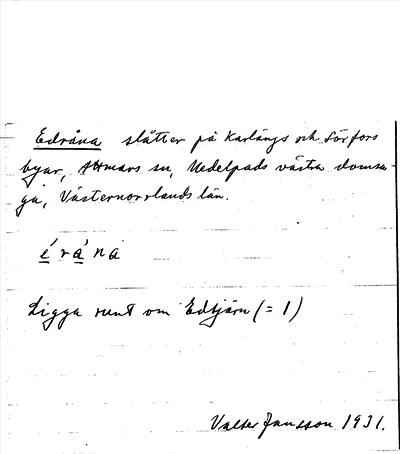 Edråna slåtter på Karlängs och Sörfors
byar, Attmars sn, Medelpads västra domsa-
ga, Västernorrlands län.
é r a ́ n a
Ligga runt om Edtjärn (= 1)
Valter Jansson 1931.